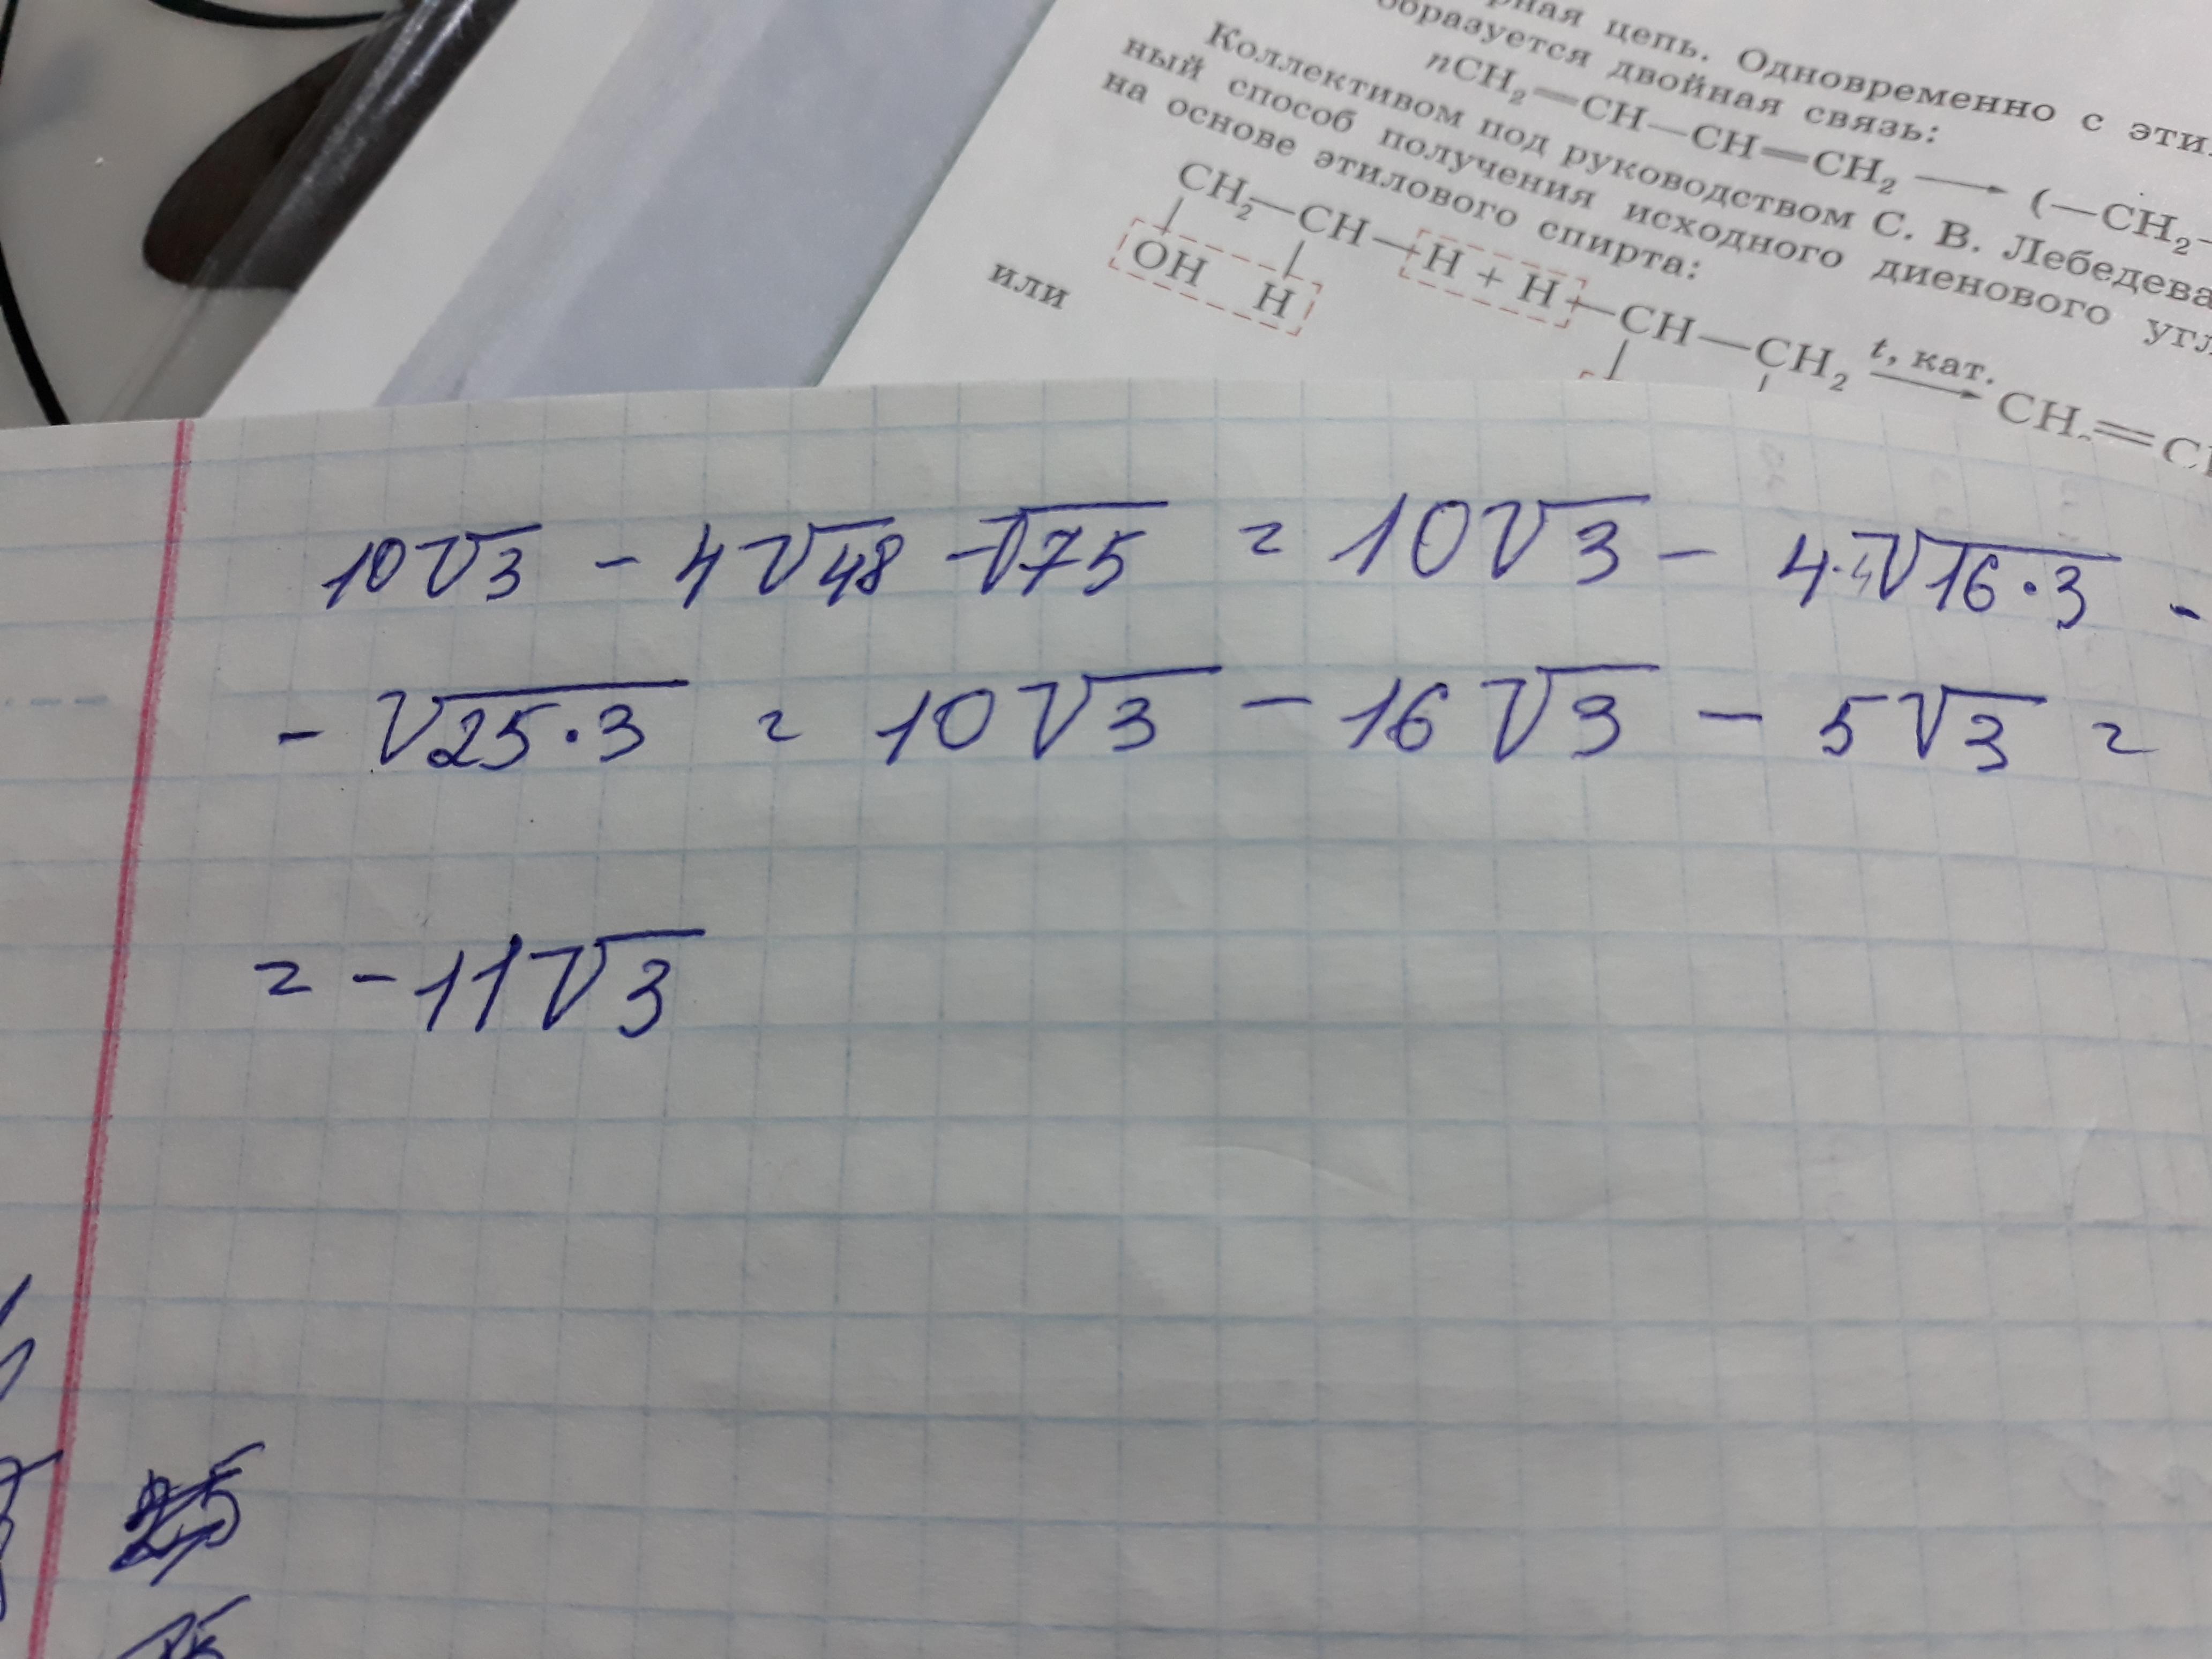 рная цепь. Одновременно с эти
образуется двойная связь:
nCH₂=CH—CH=CH₂ → (—CH₂—
Коллективом под руководством С. В. Лебедева
ный способ получения исходного диенового угл
на основе этилового спирта:
CH₂—CH—H + H—CH—CH₂ t, кат. → CH₂=CH
OH H
или
10√3 - 4√48 - √75 = 10√3 - 4·√16·3 -
- √25·3 = 10√3 - 16√3 - 5√3 =
= -11√3